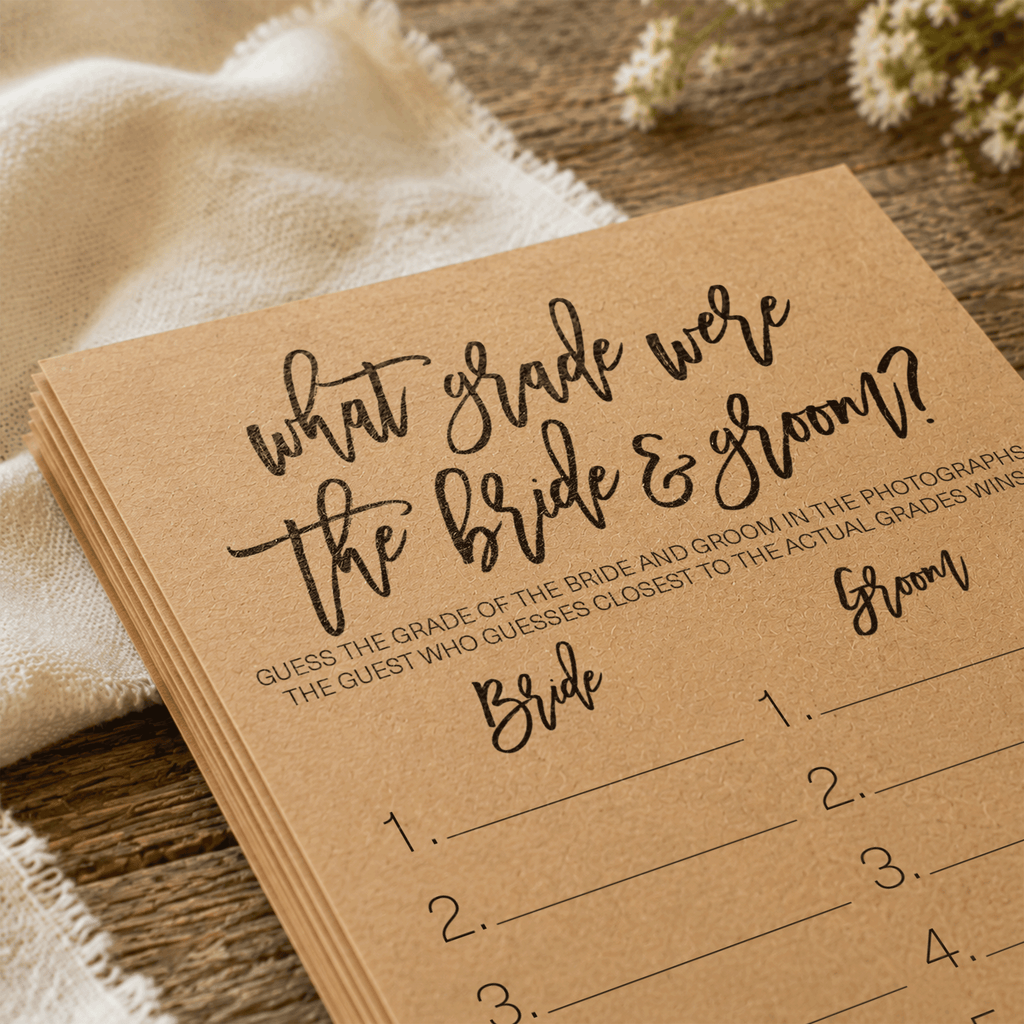 what grade were
the bride & groom?
GUESS THE GRADE OF THE BRIDE AND GROOM IN THE PHOTOGRAPHS
THE GUEST WHO GUESSES CLOSEST TO THE ACTUAL GRADES WINS
Bride
Groom
1.
2.
3.
1.
2.
3.
4.